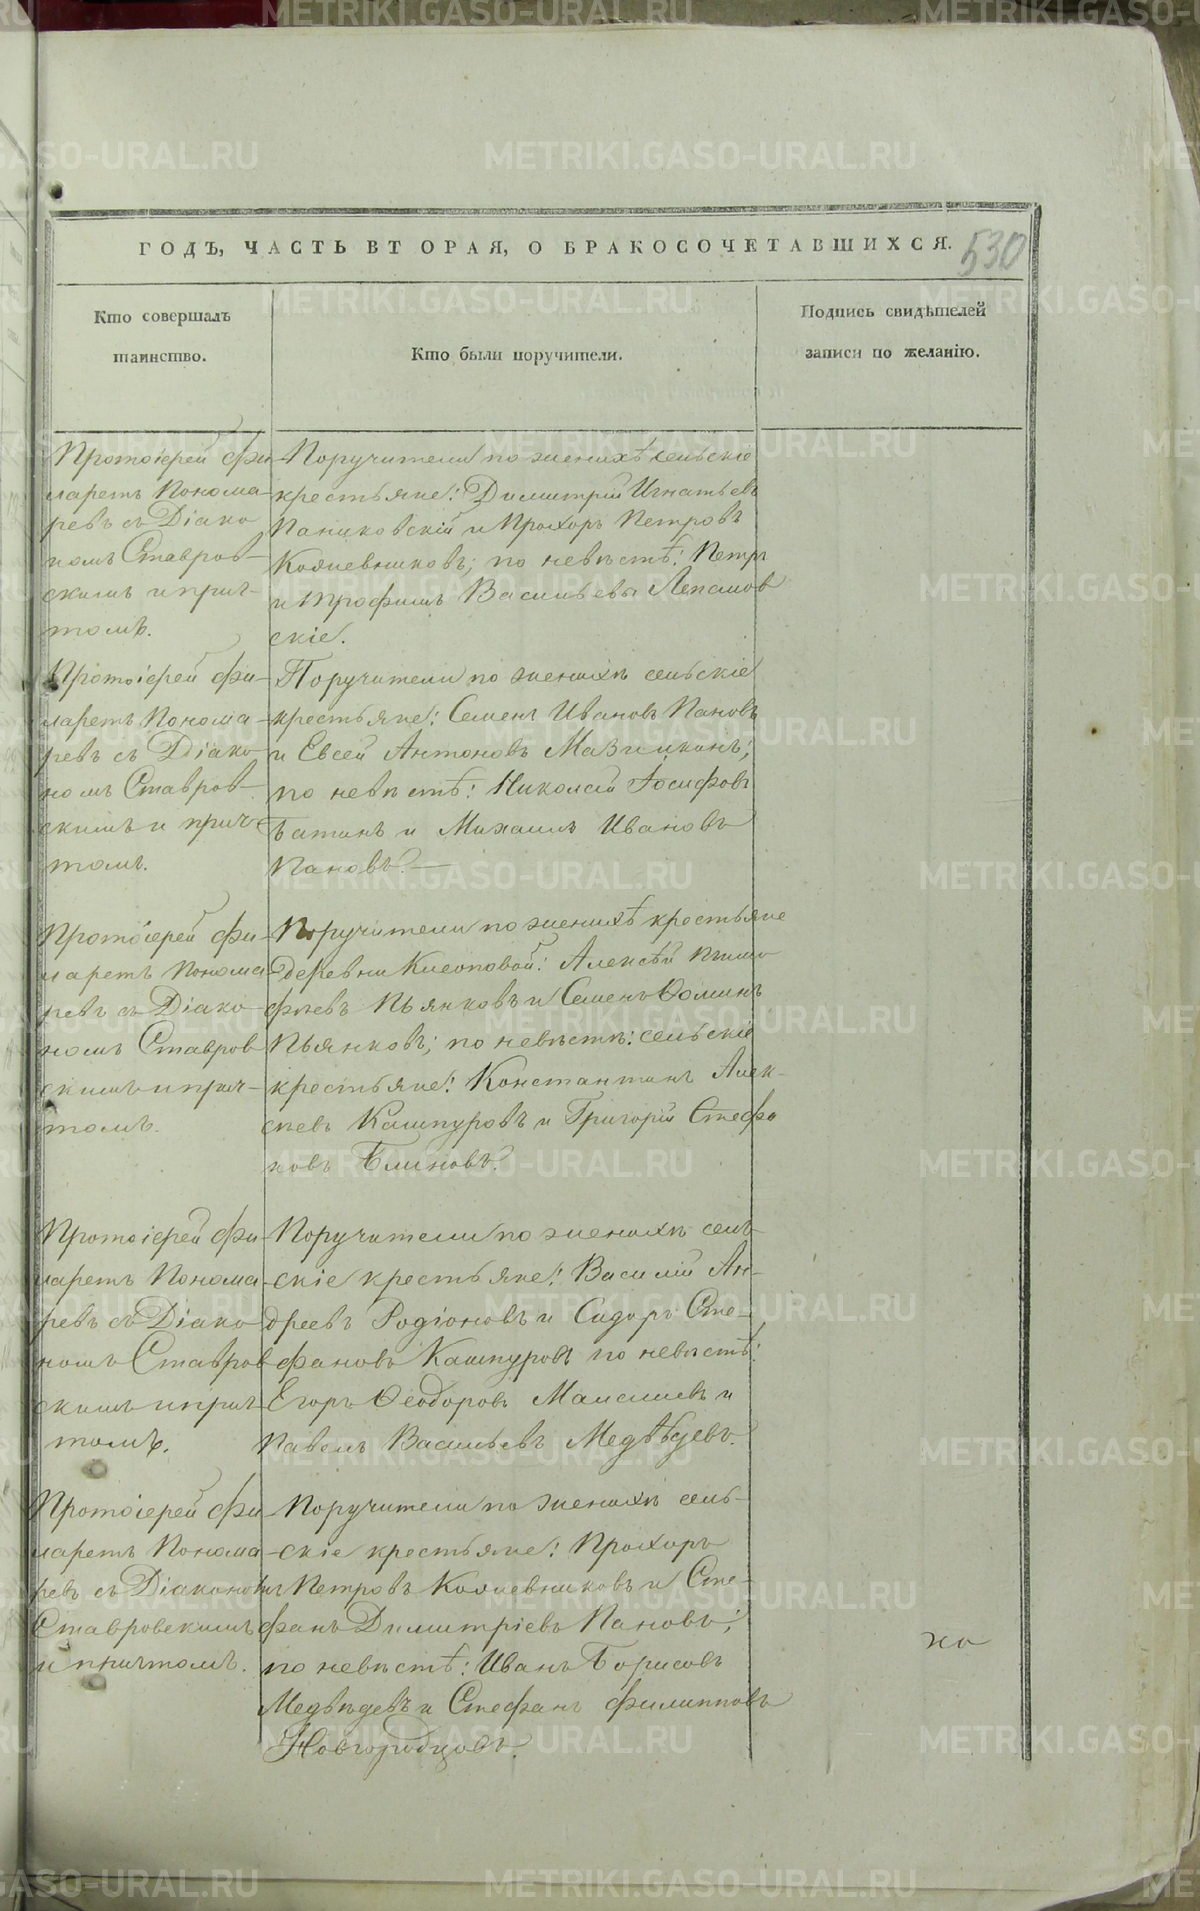 ГОДЪ, ЧАСТЬ ВТОРАЯ, О БРАКОСОЧЕТАВШИХСЯ.
530
Кто совершалъ
таинство.
Кто были поручители.
Подпись свидѣтелей
записи по желанію.
Протоіерей Фи
ларетъ Понома-
ревъ съ Діако
номъ Ставров-
скимъ и прич-
томъ.
Поручители по женихѣ сельскіе
крестьяне: Димитрій Игнатьевъ
Паниковскій и Прохоръ Петровъ
Кожевниковъ; по невѣстѣ: Петръ
и Трофимъ Васильевы Лепалов
скіе.
Протоіерей Фи-
ларетъ Понома-
ревъ съ Діако-
номъ Ставров-
скимъ и прич-
томъ.
Поручители по женихѣ сельскіе
крестьяне: Семенъ Ивановъ Пановъ
и Евсей Антоновъ Мазилкинъ;
по невѣстѣ: Николай Іосифовъ
Батинъ и Михаилъ Ивановъ
Пановъ.
Протоіерей Фи-
ларетъ Понома
ревъ съ Діако-
номъ Ставров
скимъ и прич-
томъ.
Поручители по женихѣ крестьяне
деревни Клеоповой: Алексѣй
Пьянковъ и Семенъ Ѳоминъ
Пьянковъ; по невѣстѣ: сельскіе
крестьяне: Константинъ Алек-
сѣевъ Кашпуровъ и Григорій Стефа
новъ Блиновъ.
Протоіерей Фи-
ларетъ Понома
ревъ съ Діако
номъ Ставров
скимъ и прич
томъ.
Поручители по женихѣ сель-
скіе крестьяне: Василій Ан-
дреевъ Родіоновъ и Сидоръ Сте-
фановъ Кашпуровъ по невѣстѣ:
Егоръ Ѳеодоровъ Мамышевъ и
Павелъ Васильевъ Медвѣдевъ.
Протоіерей Фи
ларетъ Понома
ревъ съ Діакономъ
Ставровскимъ
и причтомъ.
Поручители по женихѣ сель-
скіе крестьяне: Прохоръ
Петровъ Кожевниковъ и Сте-
фанъ Димитріевъ Пановъ;
по невѣстѣ: Иванъ Борисовъ
Медвѣдевъ и Стефанъ Филипповъ
Новгородцовъ.